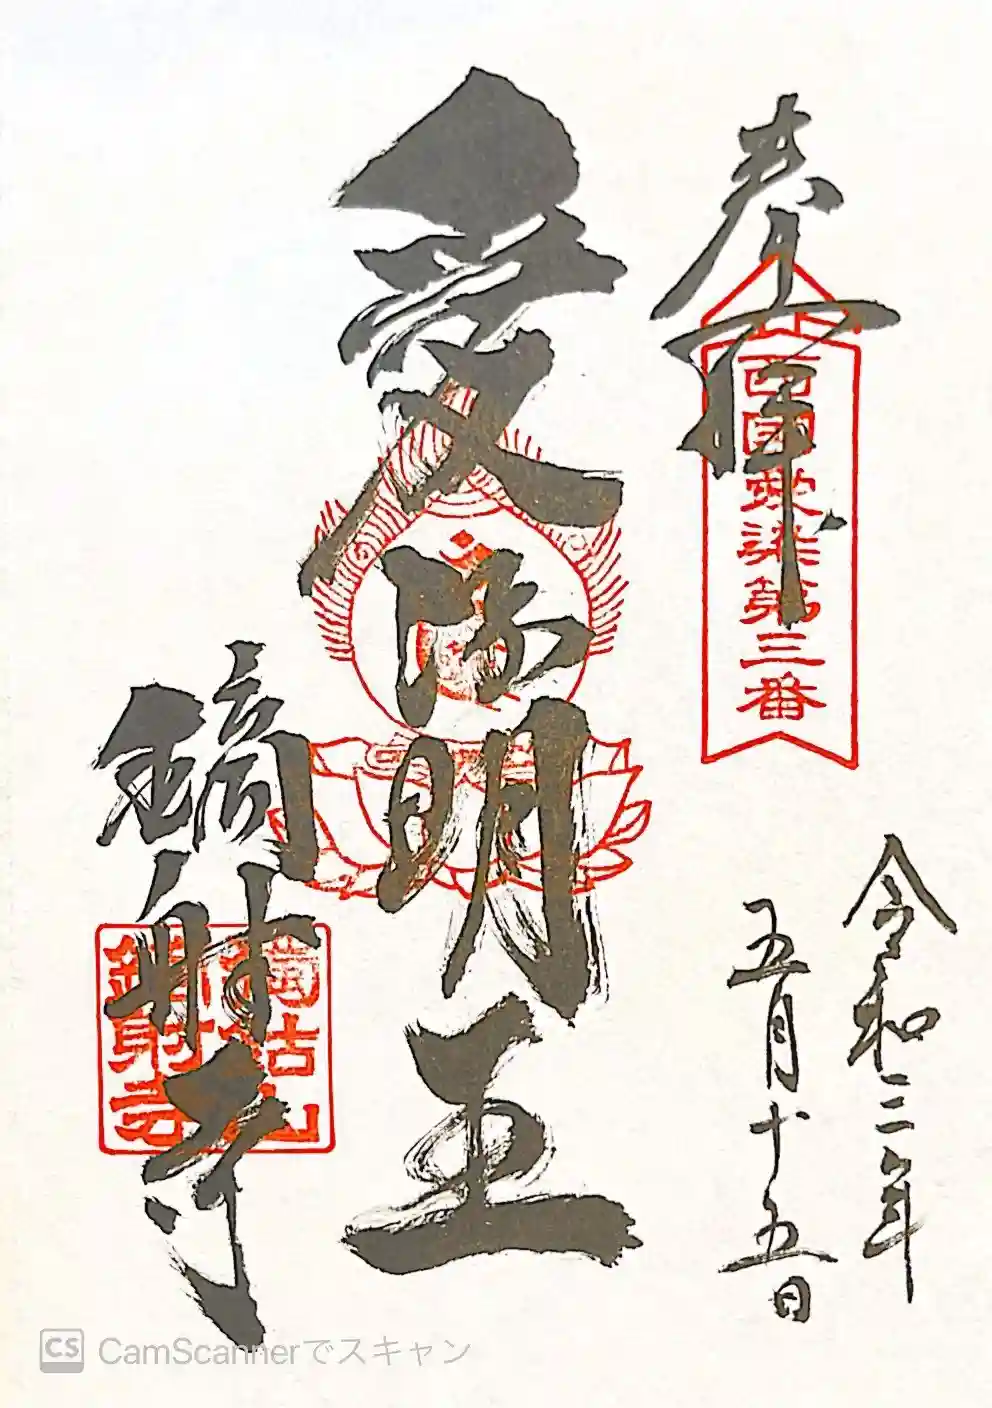 奉拝
西國愛染第三番
令和三年
五月十五日
愛染明王
鏑射寺
獨鈷山
鏑射寺
CS CamScannerでスキャン